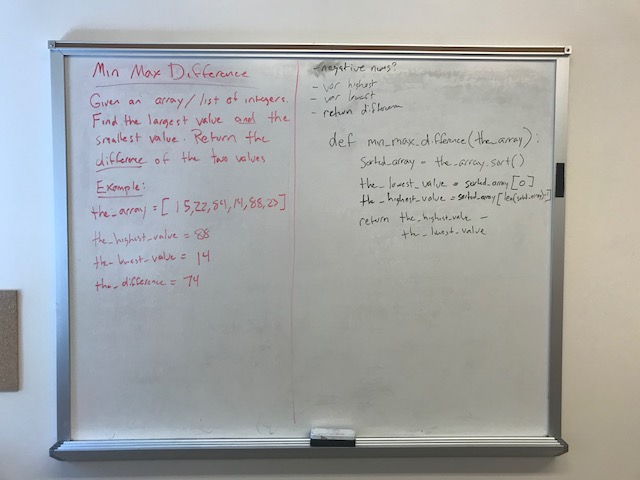 Min Max Difference
Given an array / list of integers.
Find the largest value and the
smallest value. Return the
difference of the two values
Example:
the_array = [15,22,84,14,88,23]
the_highest_value = 88
the_lowest_value = 14
the_difference = 74
- negative nums?
- var highest
- var lowest
- return difference
def min_max_difference(the_array):
sorted_array = the_array.sort()
the_lowest_value = sorted_array[0]
the_highest_value = sorted_array
return the_highest_value -
the_lowest_value